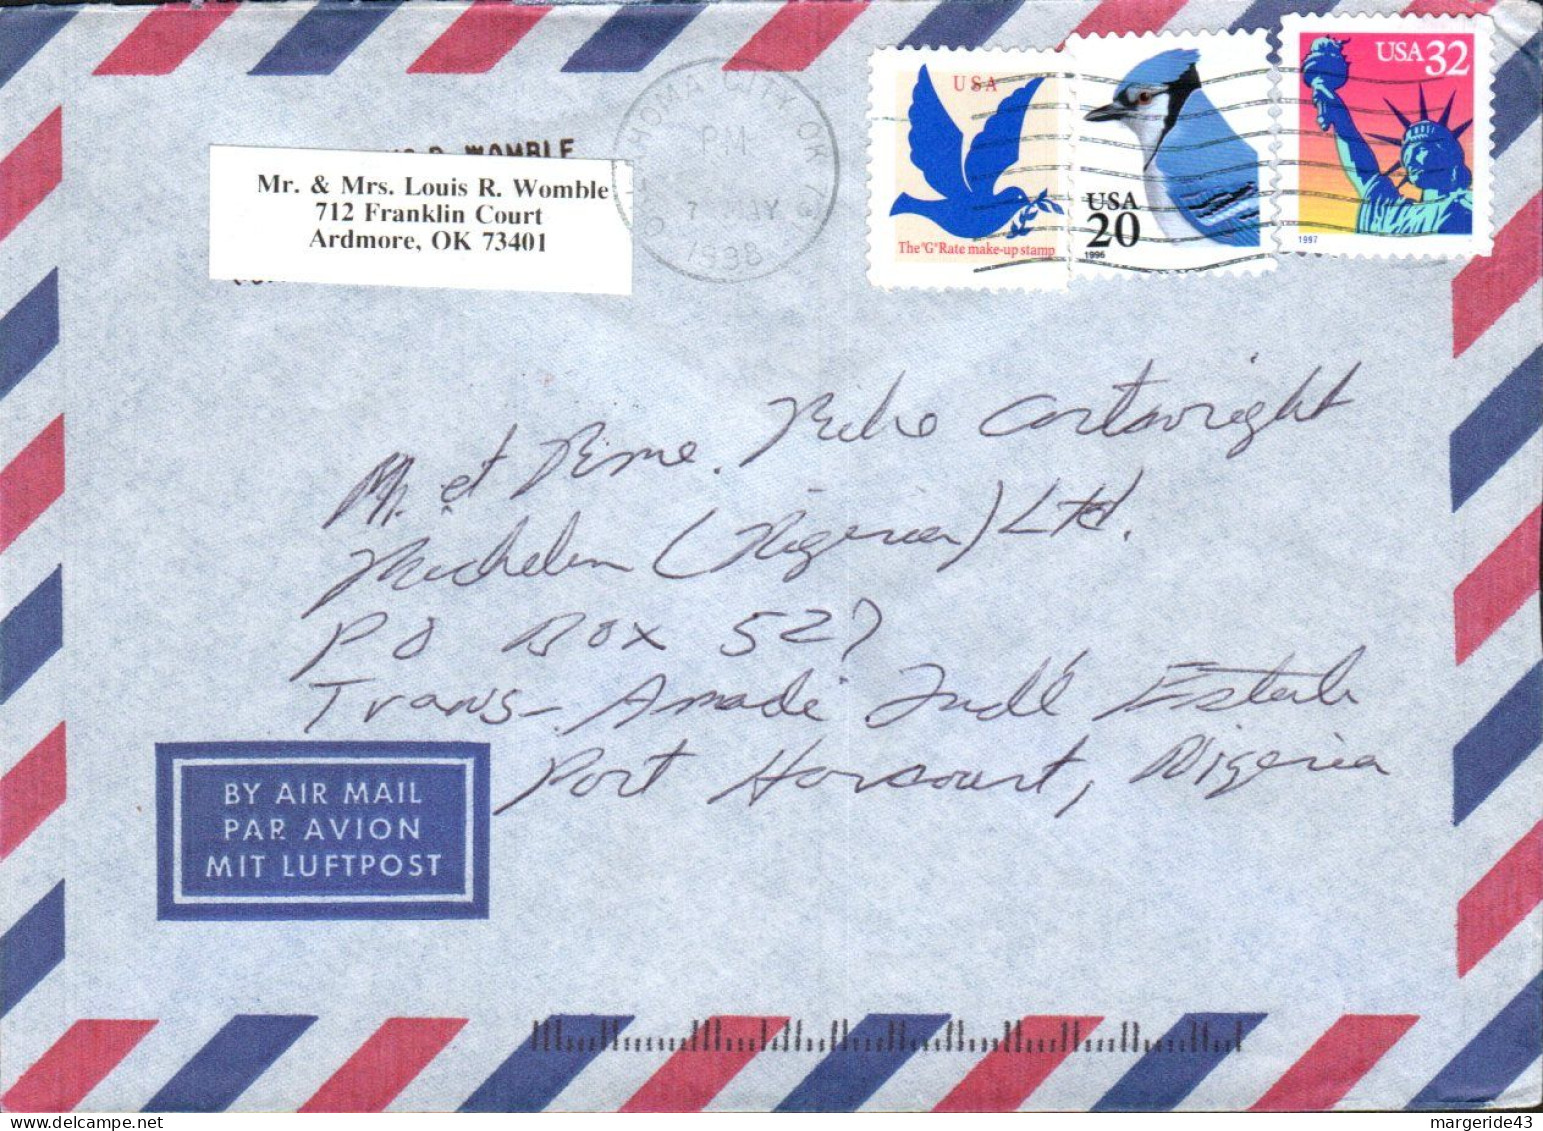 WOMBLE
Mr. & Mrs. Louis R. Womble
712 Franklin Court
Ardmore, OK 73401
OKLAHOMA CITY OK
PM
7
1998
USA
The "G" Rate make-up stamp
USA
20
1996
USA 32
1997
M. et Mme. Mike Cartwright
Michelin (Nigeria) Ltd.
PO Box 527
Trans-Amadi Ind'l Estate
Port Harcourt, Nigeria
BY AIR MAIL
PAR AVION
MIT LUFTPOST
margeride43